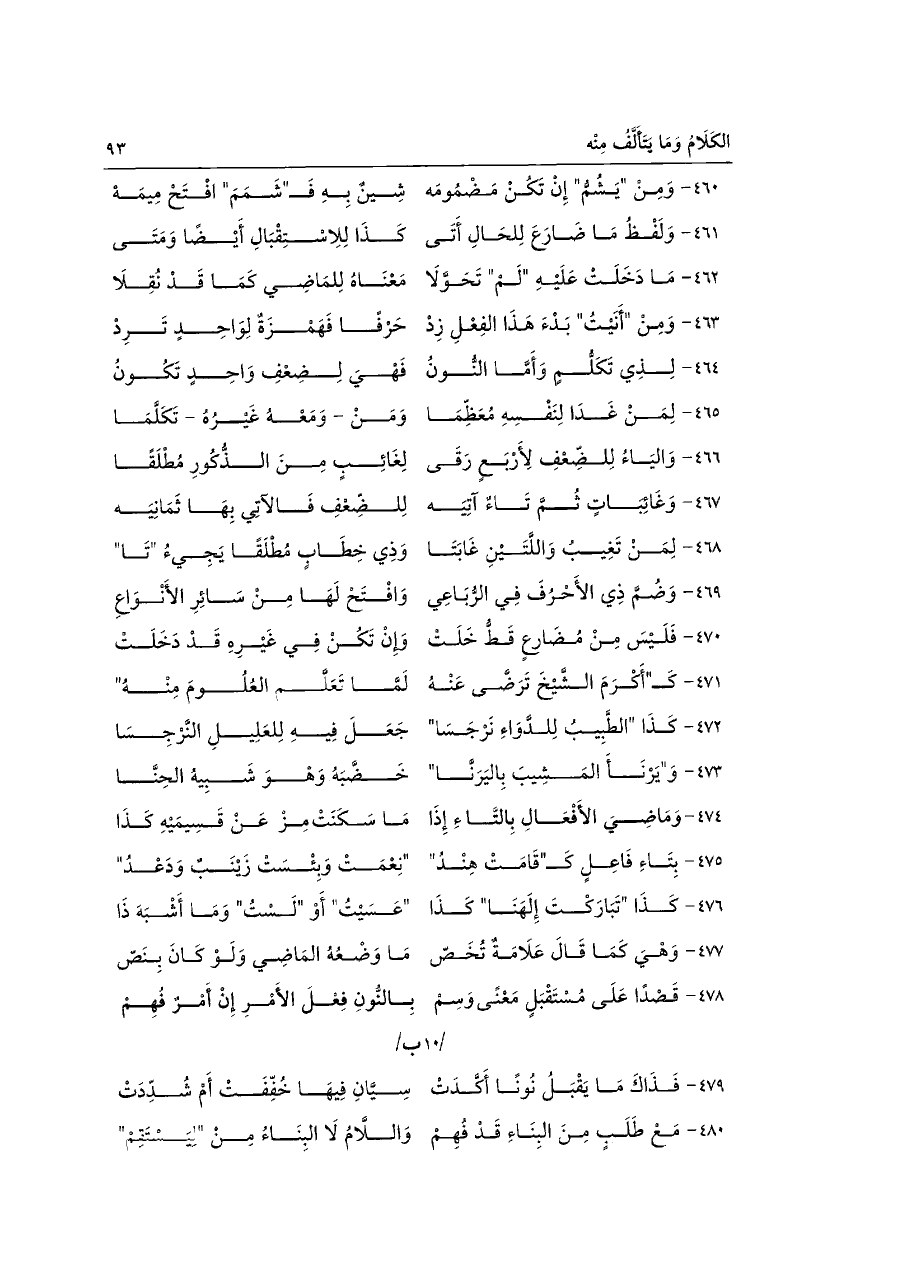 الكَلَامُ وَمَا يَتَأَلَّفُ مِنْه ٩٣
٤٦٠- وَمِنْ "يَشُمُّ" إِنْ تَكُنْ مَضْمُومَه شِينٌ بِهِ فَـ"شَمَمَ" افْتَحْ مِيمَهْ
٤٦١- وَلَفْظُ مَا ضَارَعَ لِلحَالِ أَتَى كَذَا لِلِاسْتِقْبَالِ أَيْضًا وَمَتَى
٤٦٢- مَا دَخَلَتْ عَلَيْهِ "لَمْ" تَحَوَّلَا مَعْنَاهُ لِلمَاضِي كَمَا قَدْ نُقِلَا
٤٦٣- وَمِنْ "أَنَيْتُ" بَدْءَ هَذَا الفِعْلِ زِدْ حَرْفًا فَهَمْزَةٌ لِوَاحِدٍ تَرِدْ
٤٦٤- لِذِي تَكَلُّمٍ وَأَمَّا النُّونُ فَهْيَ لِضِعْفِ وَاحِدٍ تَكُونُ
٤٦٥- لِمَنْ غَدَا لِنَفْسِهِ مُعَظِّمَا وَمَنْ - وَمَعْهُ غَيْرُهُ - تَكَلَّمَا
٤٦٦- وَاليَاءُ لِلضِّعْفِ لِأَرْبَعٍ رَقَى لِغَائِبٍ مِنَ الذُّكُورِ مُطْلَقًا
٤٦٧- وَغَائِبَاتٍ ثُمَّ تَاءٌ آتِيَه لِلضِّعْفِ فَالآتِي بِهَا ثَمَانِيَه
٤٦٨- لِمَنْ تَغِيبُ وَاللَّتَيْنِ غَابَتَا وَذِي خِطَابٍ مُطْلَقًا يَجِيءُ "تَا"
٤٦٩- وَضُمَّ ذِي الأَحْرُفَ فِي الرُّبَاعِي وَافْتَحْ لَهَا مِنْ سَائِرِ الأَنْوَاعِ
٤٧٠- فَلَيْسَ مِنْ مُضَارِعٍ قَطُّ خَلَتْ وَإِنْ تَكُنْ فِي غَيْرِهِ قَدْ دَخَلَتْ
٤٧١- كَـ"أَكْرَمَ الشَّيْخَ تَرَضَّى عَنْهُ لَمَّا تَعَلَّمَ العُلُومَ مِنْهُ"
٤٧٢- كَذَا "الطَّبِيبُ لِلدَّوَاءِ نَرْجَسَا" جَعَلَ فِيهِ لِلعَلِيلِ النَّرْجِسَا
٤٧٣- وَ"يَرْنَأَ المَشِيبَ بِاليَرَنَّا" خَضَّبَهُ وَهْوَ شَبِيهُ الحِنَّا
٤٧٤- وَمَاضِيَ الأَفْعَالِ بِالتَّاءِ إِذَا مَا سَكَنَتْ مِزْ عَنْ قَسِيمَيْهِ كَذَا
٤٧٥- بِتَاءِ فَاعِلٍ كَـ"قَامَتْ هِنْدُ" "نِعْمَتْ وَبِئْسَتْ زَيْنَبٌ وَدَعْدُ"
٤٧٦- كَذَا "تَبَارَكْتَ إِلَهَنَا" كَذَا "عَسَيْتُ" أَوْ "لَسْتُ" وَمَا أَشْبَهَ ذَا
٤٧٧- وَهْيَ كَمَا قَالَ عَلَامَةٌ تُخَصّ مَا وَضْعُهُ المَاضِي وَلَوْ كَانَ بِنَصّ
٤٧٨- قَصْدًا عَلَى مُسْتَقْبَلٍ مَعْنًى وَسِمْ بِالنُّونِ فِعْلَ الأَمْرِ إِنْ أَمْرٌ فُهِمْ
/١٠ب/
٤٧٩- فَذَاكَ مَا يَقْبَلُ نُونًا أَكَّدَتْ سِيَّانِ فِيهَا خُفِّفَتْ أَمْ شُدِّدَتْ
٤٨٠- مَعْ طَلَبٍ مِنَ البِنَاءِ قَدْ فُهِمْ وَاللَّامُ لَا البِنَاءُ مِنْ "لِيَسْتَقِمْ"